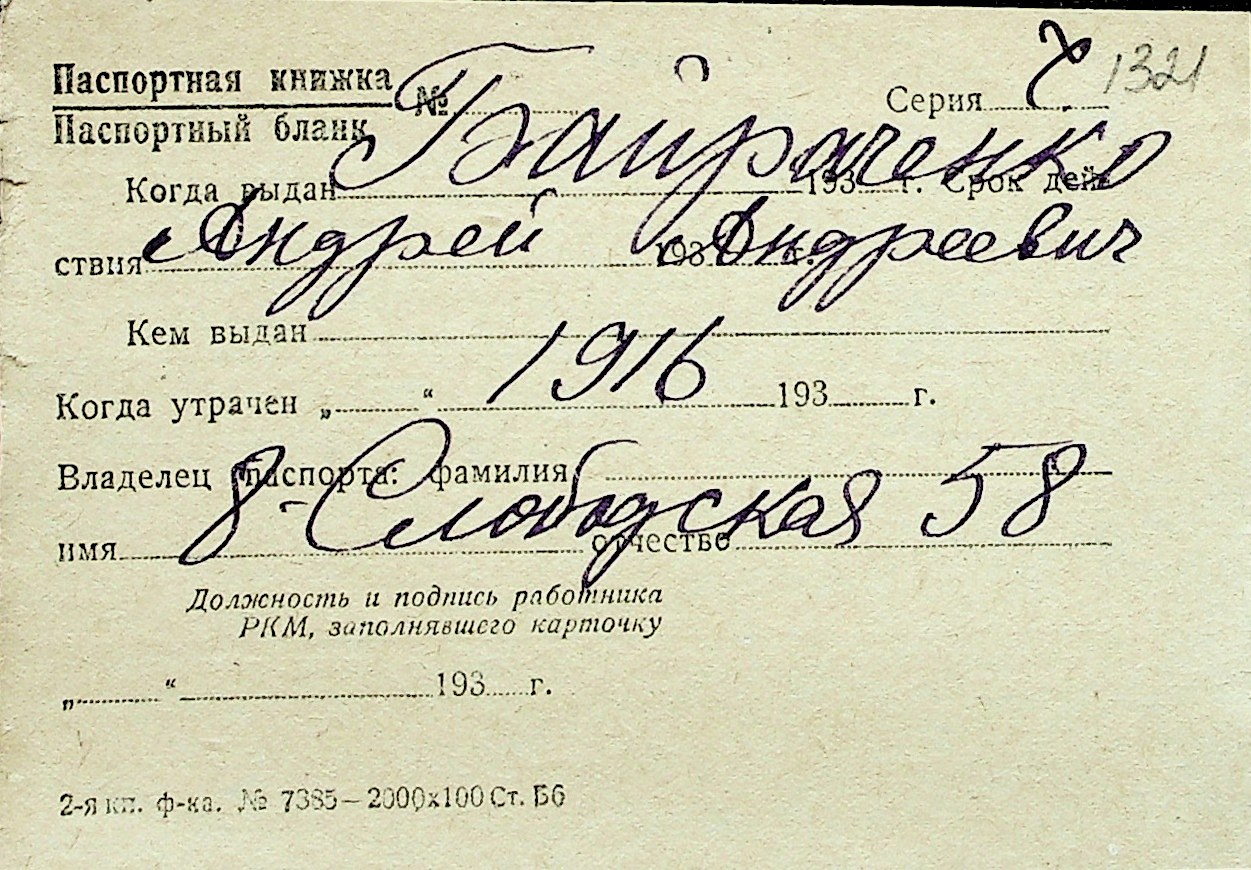 Паспортная книжка
Паспортный бланк № Серия 1321
Байраченко
Когда выдан 193 г. Срок дей-
Андрей Андреевич
ствия 193 г.
Кем выдан
1916
Когда утрачен „ “ 193 г.
Владелец паспорта: фамилия
8-Слободская 58
имя отчество
Должность и подпись работника
РКМ, заполнявшего карточку
„ “ 193 г.
2-я кп. ф-ка. № 7385—2000х100 Ст. Б6